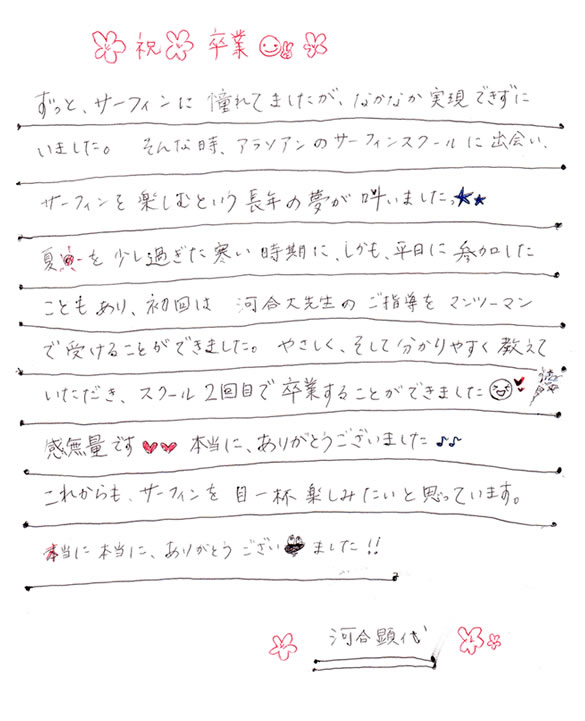 祝 卒業
ずっと、サーフィンに 憧れてましたが、なかなか 実現できずに
いました。 そんな時、アラソアンのサーフィンスクールに 出会い、
サーフィンを 楽しむという 長年の夢が 叶いました。
夏を 少し過ぎた 寒い 時期に、しかも、平日に 参加した
こともあり、初回は 河合大先生の ご指導を マンツーマン
で 受けることができました。 やさしく、そして分かりやすく 教えて
いただき、スクール 2回目で 卒業することができました
感無量です 本当に、ありがとうございました♪♪
これからも、サーフィンを 目一杯 楽しみたいと思っています。
本当に 本当に、ありがとう ござい ました!!
河合顕代